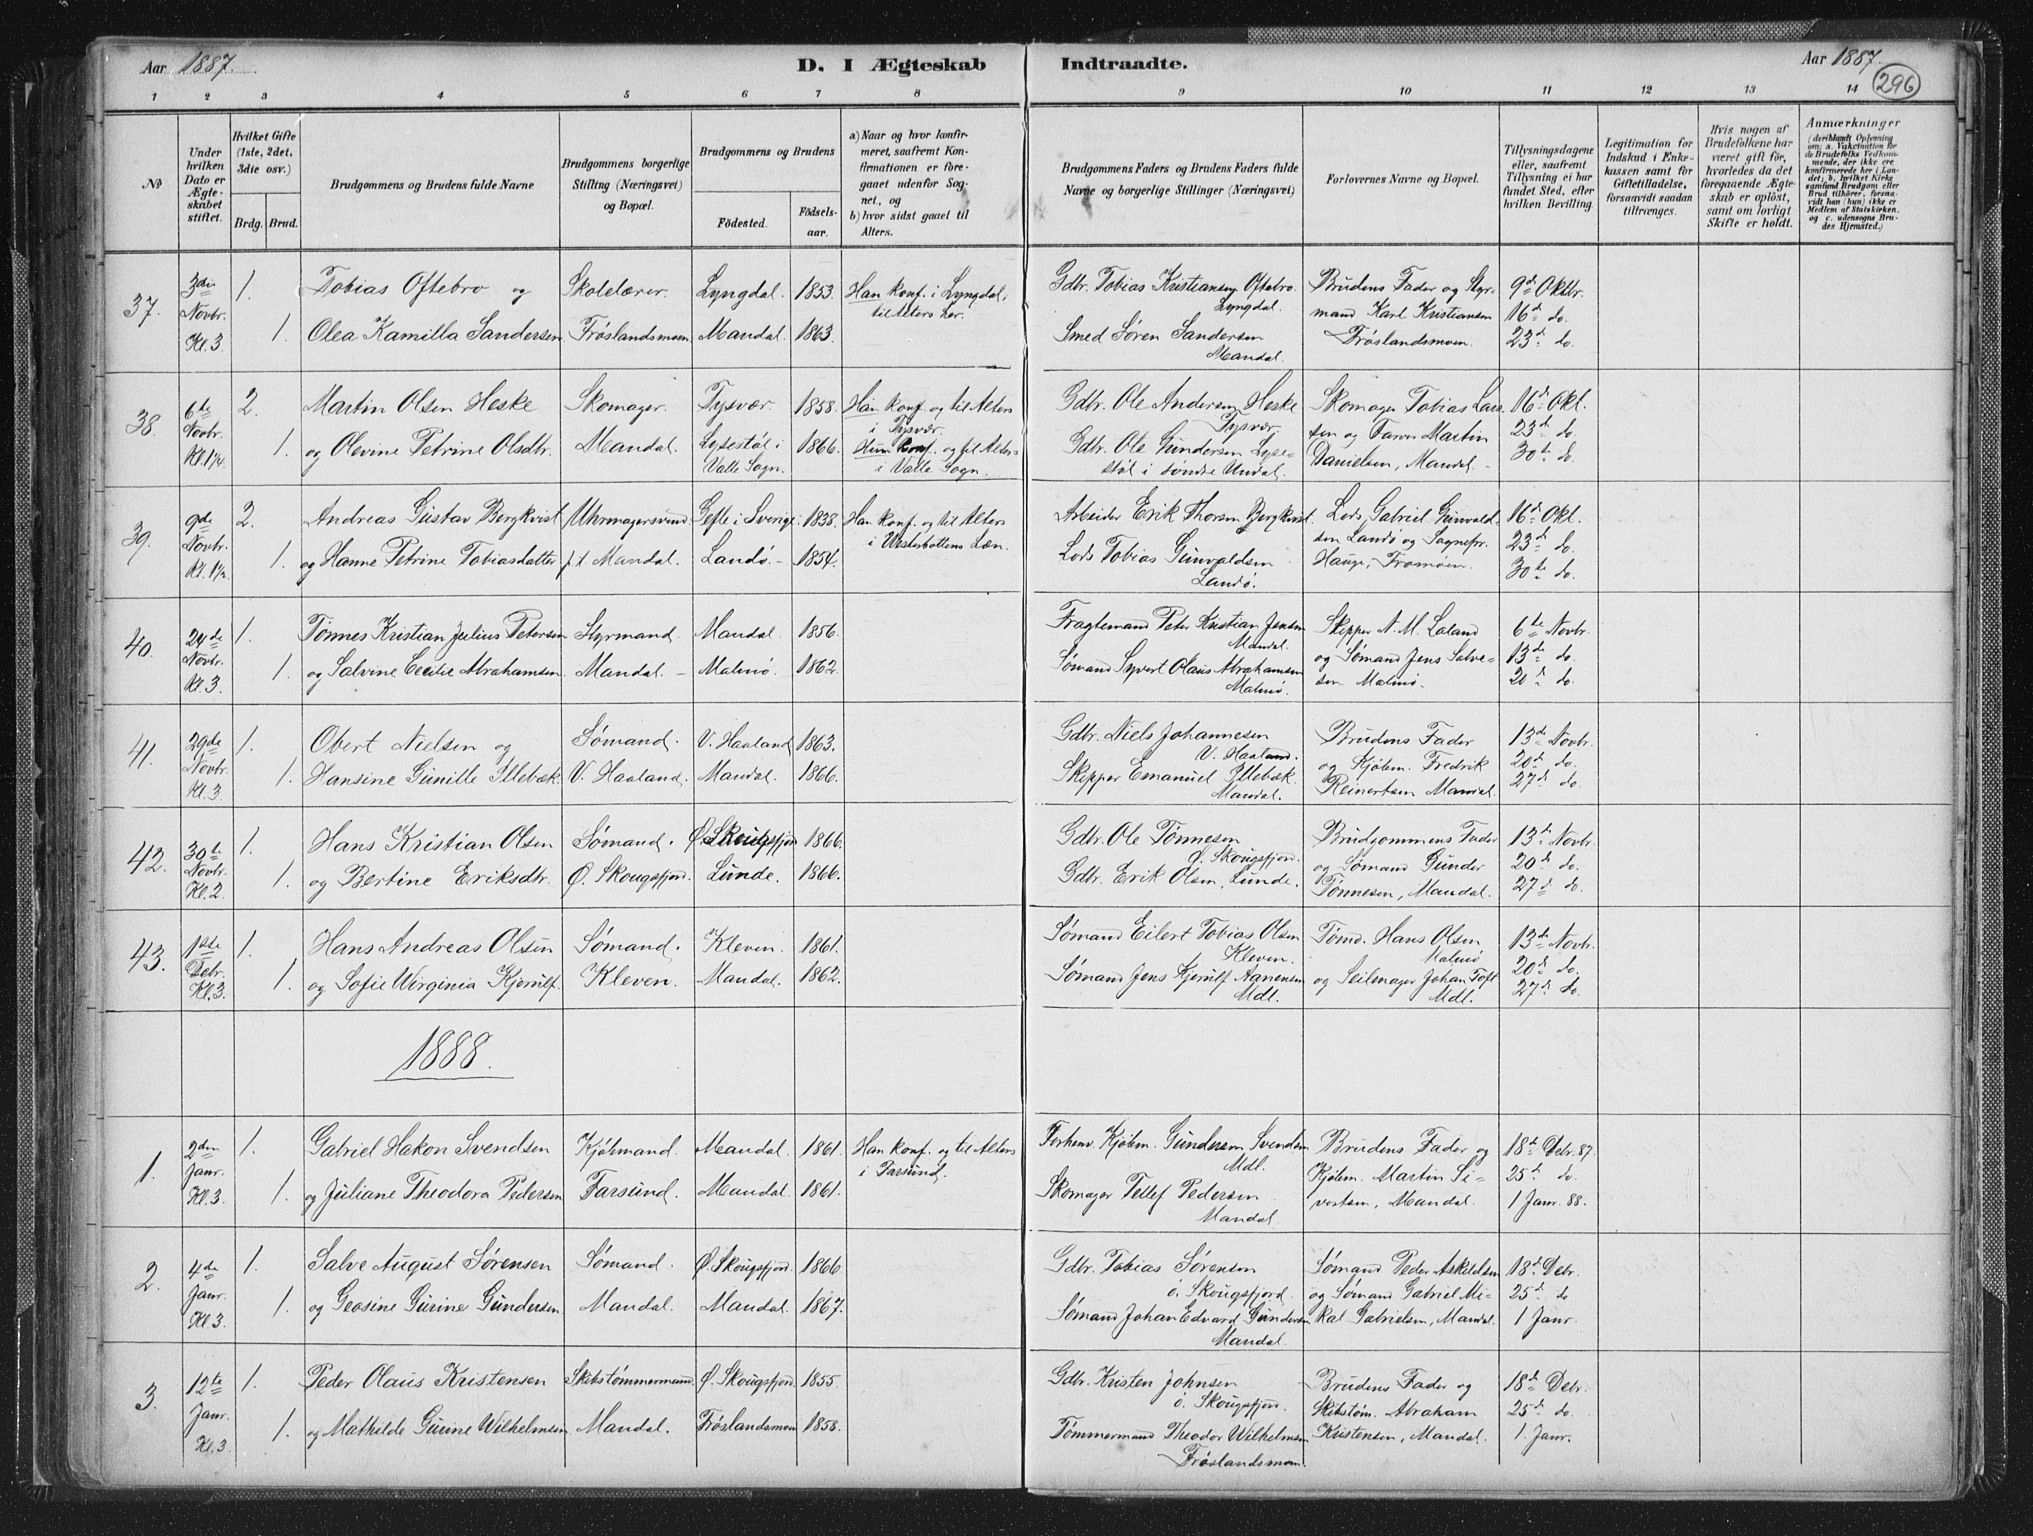 Aar 1887. D. I Ægteskab Indtraadte. Aar 1887.
296
1 2 3 4 5 6 7 8 9 10 11 12 13 14
No
Under hvilken Dato er Ægteskabet stiftet.
Hvilket Gifte (1ste, 2det, 3die osv.)
Brdg. Brud.
Brudgommens og Brudens fulde Navne
Brudgommens borgerlige Stilling (Næringsvei) og Bopæl.
Brudgommens og Brudens
Födested. Födselsaar.
a) Naar og hvor konfirmeret, saafremt Konfirmationen er foregaaet udenfor Sognet, og
b) hvor sidst gaaet til Alters.
Brudgommens Faders og Brudens Faders fulde Navne og borgerlige Stillinger (Næringsvei)
Forlovernes Navne og Bopæl.
Tillysningsdagene eller, saafremt Tillysning ei har fundet Sted, efter hvilken Bevilling.
Legitimation for Indskud i Enkekassen samt for Giftetilladelse, forsaavidt saadan tiltrænges.
Hvis nogen af Brudefolkene har været gift för, hvorledes da det foregaaende Ægteskab er oplöst, samt om lovligt Skifte er holdt.
Anmærkninger (deriblandt Oplysning om: a. Vakcination for de Brudefolks Vedkommende, der ikke ere konfirmerede her i Landet; b. hvilket Kirkesamfund Brudgom eller Brud tilhörer, forsaavidt han (hun) ikke er Medlem af Statskirken, og c. udensogns Brudes Hjemsted.)
37. 3die Novbr. Kl. 3 1. Tobias Oftebro og Skolelærer. Lyngdal. 1853. Han konf. i Lyngdal, til Alters her. Gdbr. Tobias Kristiansen Oftebro. Lyngdal. Brudens Fader og Styrmand Karl Kristiansen Frøslandsmoen. 9de Oktbr.
16de do.
1. Olea Kamilla Sandersen Frøslandsmoen Mandal. 1863. Smed Søren Sandersen Mandal. 23de do.
38. 6te Novbr. Kl. 1¼ 2. Martin Olsen Heske Skomager. Tysvær. 1858. Han konf. og til Alters i Tysvær. Gdbr. Ole Andersen Heske Tysvær. Skomager Tobias Larssen og Farver Martin Danielsen, Mandal. 16de Okt.
23de do.
1. og Olevine Petrine Olsdtr. Mandal. Lysestøl i Valle Sogn. 1866. Hun konf. og til Alters i Valle Sogn. Gdbr. Ole Gundersen Lysestøl i Søndre Undal. 30te do.
39. 9de Novbr. Kl. 1½ 2. Andreas Gustav Bergkvist Uhrmagersvend Gefle i Sverige. 1838. Han konf. og til Alters i Westerbottens Læn. Arbeider Erik Thorsen Bergkvist. Lods Gabriel Gunvaldsen Landø og Sognepr. Hauge, Fromoen. 16de Okt.
23de do.
1. og Hanne Petrine Tobiasdatter p.t. Mandal. Landø. 1854. Lods Tobias Gunvaldsen Landø. 30te do.
40. 24de Novbr. Kl. 3 1. Tønnes Kristian Julius Petersen Styrmand. Mandal. 1856. Fragtemand Peter Kristian Jensen Mandal. Skipper N. M. Laland og Sømand Jens Salvesen Malmø. 6te Novbr.
13de do.
1. og Salvine Cecilie Abrahamsen. Mandal. Malmø. 1862. Sømand Syvert Olaus Abrahamsen Malmø. 20de do.
41. 29de Novbr. Kl. 3 1. Obert Nielsen og Sømand. V. Haaland 1863. Gdbr. Niels Johannesen V. Haaland. Brudens Fader og Kjøbm. Fredrik Reinertsen Mandal. 13de Novbr.
20de do.
1. Hansine Gunille Illebæk V. Haaland. Mandal. 1866. Skipper Emanuel Illebæk Mandal. 27de do.
42. 30te Novbr. Kl. 2 1. Hans Kristian Olsen Sømand. Ø. Skougsfjord 1866. Gdbr. Ole Tønnesen Ø. Skougsfjord. Brudgommens Fader og Sømand Gunder Tønnesen, Mandal. 13de Novbr.
20de do.
1. og Bertine Eriksdtr. Ø. Skougsfjord. Lunde. 1866. Gdbr. Erik Olsen, Lunde. 27de do.
43. 1ste Debr. Kl. 3. 1. Hans Andreas Olsen Sømand. Kleven. 1861. Sømand Eilert Tobias Olsen Kleven. Tømd. Hans Olsen Malmø og Seilmager Johan Toft Mdl. 13de Novbr.
20de do.
1. og Sofie Wirginia Kjerulf. Kleven. Mandal. 1862. Sømand Jens Kjerulf Aanensen Mdl. 27de do.
1888.
1. 2den Janr. Kl. 3 1. Gabriel Hakon Svendsen Kjøbmand. Mandal. 1861. Han konf. og til Alters i Farsund. Forhenv. Kjøbm. Gundersen Svendsen Mdl. Brudens Fader og Kjøbm. Martin Sivertsen, Mandal. 18de Debr. 87.
25de do.
1. og Juliane Theodora Pedersen Farsund. Mandal. 1861. Skomager Tellef Pedersen Mandal. 1 Janr. 88.
2. 4de Janr. Kl. 3. 1. Salve August Sørensen Sømand. Ø. Skougsfjord. 1866 Gdbr. Tobias Sørensen ø. Skougsfjord. Sømand Peder Askildsen og Sømand Gabriel Mikal Gabrielsen, Mandal. 18de Debr.
25de do
1. og Geosine Gurine Gundersen Mandal. Mandal. 1867. Sømand Johan Edvard Gundersen Mandal. 1 Janr.
3. 12te Janr. Kl. 3 1. Peder Olaus Kristensen Skibstømmermand. Ø. Skougsfjord. 1855. Gdbr. Kristen Johnsen ø. Skougsfjord. Brudens Fader og Skibstøm. Abraham Kristensen, Mandal. 18de Debr.
25de do.
1. og Mathilde Gurine Wilhelmsen Mandal. Frøslandsmoen 1858. Tømmermand Theodor Wilhelmsen Frøslandsmoen. 1. Janr.